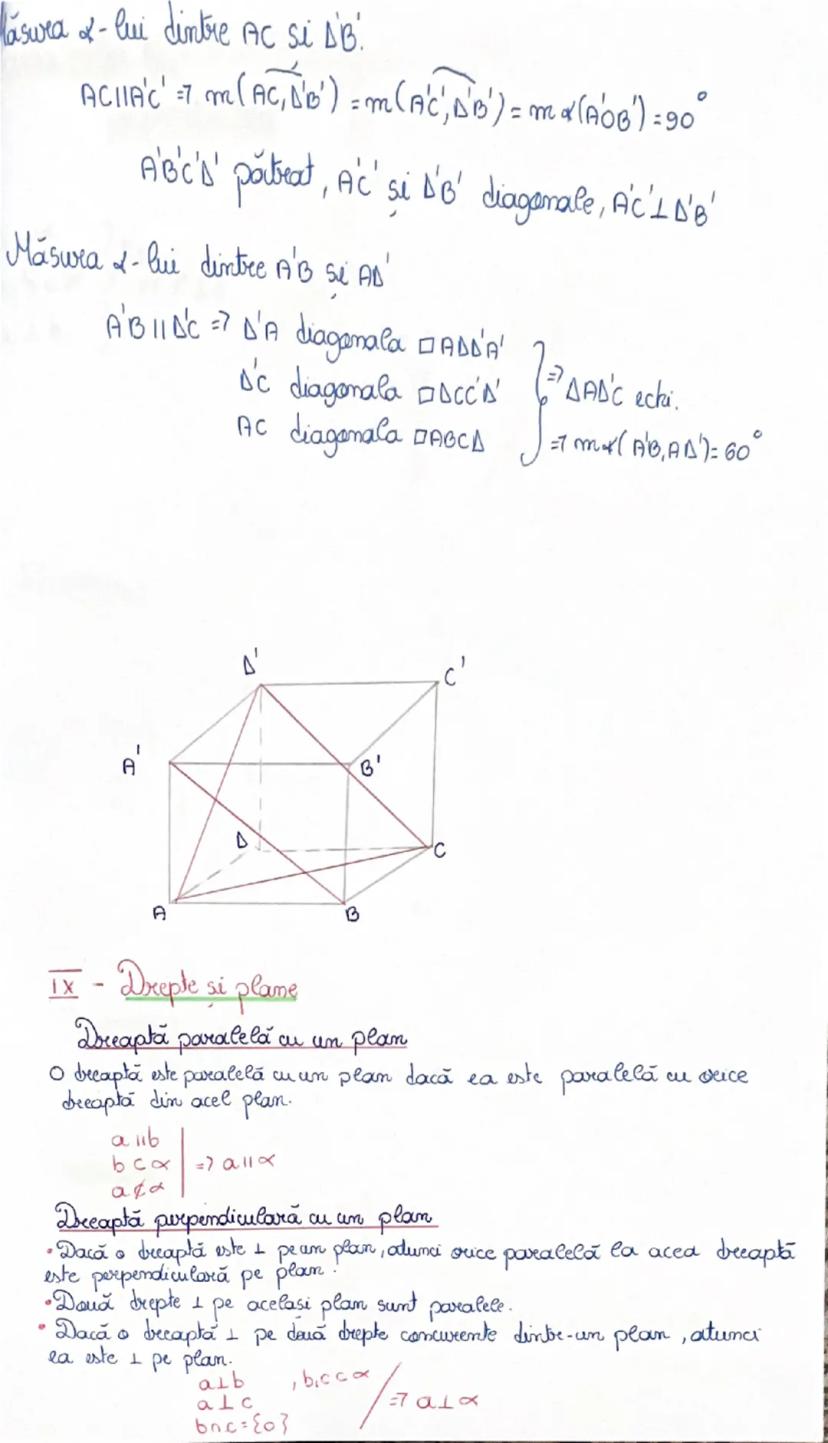 Măsura ∢-lui dintre AC si D'B'.
AC||A'C' => m(AC,D'B') = m(A'C',D'B') = m∢(A'OB') = 90°
A'B'C'D' pătrat, A'C' și D'B' diagonale, A'C'⊥D'B'
Măsura ∢-lui dintre A'B și AD'
A'B||D'C => D'A diagonala □ADD'A'
D'C diagonala □DCC'D' => ΔAD'C echi.
AC diagonala □ABCD => m∢(A'B,AD')=60°
D' C'
A' B'
D C
A B
IX - Drepte și plane
Dreaptă paralelă cu un plan
O dreaptă este paralelă cu un plan dacă ea este paralelă cu orice
dreaptă din acel plan.
a||b
b⊂α => a||α
a⊄α
Dreaptă perpendiculară cu un plan
•Dacă o dreaptă este ⊥ pe un plan, atunci orice paralelă la acea dreaptă
este perpendiculară pe plan.
•Două drepte ⊥ pe acelasi plan sunt paralele.
•Dacă o dreaptă ⊥ pe două drepte concurente dintr-un plan, atunci
ea este ⊥ pe plan.
a⊥b , b,c⊂α
a⊥c => a⊥α
b∩c={o}